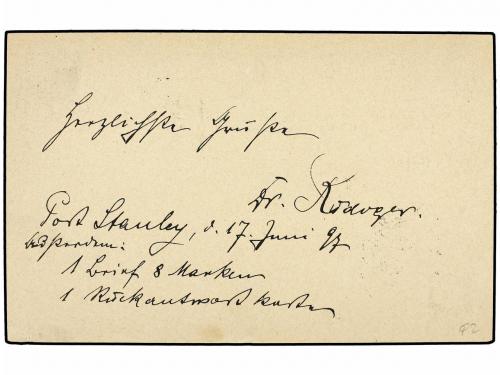 Herzlichste Grüße
Dr. Rüdiger.
Port Stanley, d. 17. Juni 97
Außerdem:
1 Brief 8 Marken
1 Rückantwortkarte